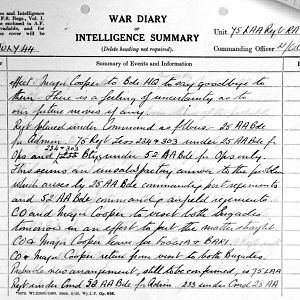 s and Intelligence
F.S. Regs., Vol. I.
be enclosed in A.F.
Available, and for
cover will be
WAR DIARY
or
INTELLIGENCE SUMMARY
(Delete heading not required).
Unit 75 LAA Regt RA
Commanding Officer
JULY 44
Summary of Events and Information
effect. Major Cooper to Bde HQ to say goodbye to
them. There is a feeling of uncertainty as to
our future moves if any.
Regt placed under Command as follows: 25 AA Bde
for Admin. 75 Regt less 234 & 303 under 25 AA Bde for
234 & 303
Ops and Btys under 52 AA Bde for Ops only.
This seems an unsatisfactory answer to the problem
which arises by 25 AA Bde commanding port regiments
and 52 AA Bde commanding airfield regiments.
CO and Major Cooper to visit both brigades
tomorrow in an effort to put the matter straight.
CO & Major Cooper leave for FOGGIA & BARI.
CO & Major Cooper return from visit to both Brigades.
new arrangement, still to be confirmed, is 75 LAA
Regt under Cond 52 AA Bde for Admin. 233 under Cond 25 AA